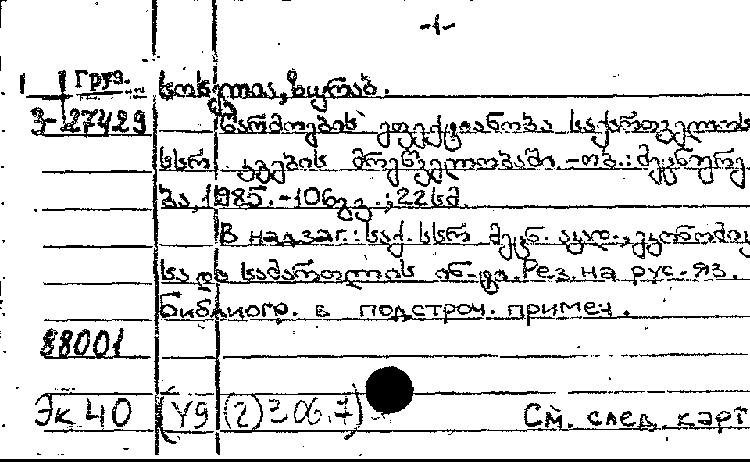 -1-
1 Груз.
სოსელია, ზურაბ.
3-27429 წარმოების ეფექტიანობა საქართველოს
სსრ კვების მრეწველობაში. - თბ.: მეცნიერე
ბა, 1985. - 106 გვ.; 22 სმ.
В надзаг.: საქ. სსრ მეცნ. აკად., ეკონომიკი
სა და სამართლის ინ-ტი. Рез. на рус. яз.
Библиогр. в подстроч. примеч.
88001
Эк 40 (У9(2)306.7)
См. след. карт